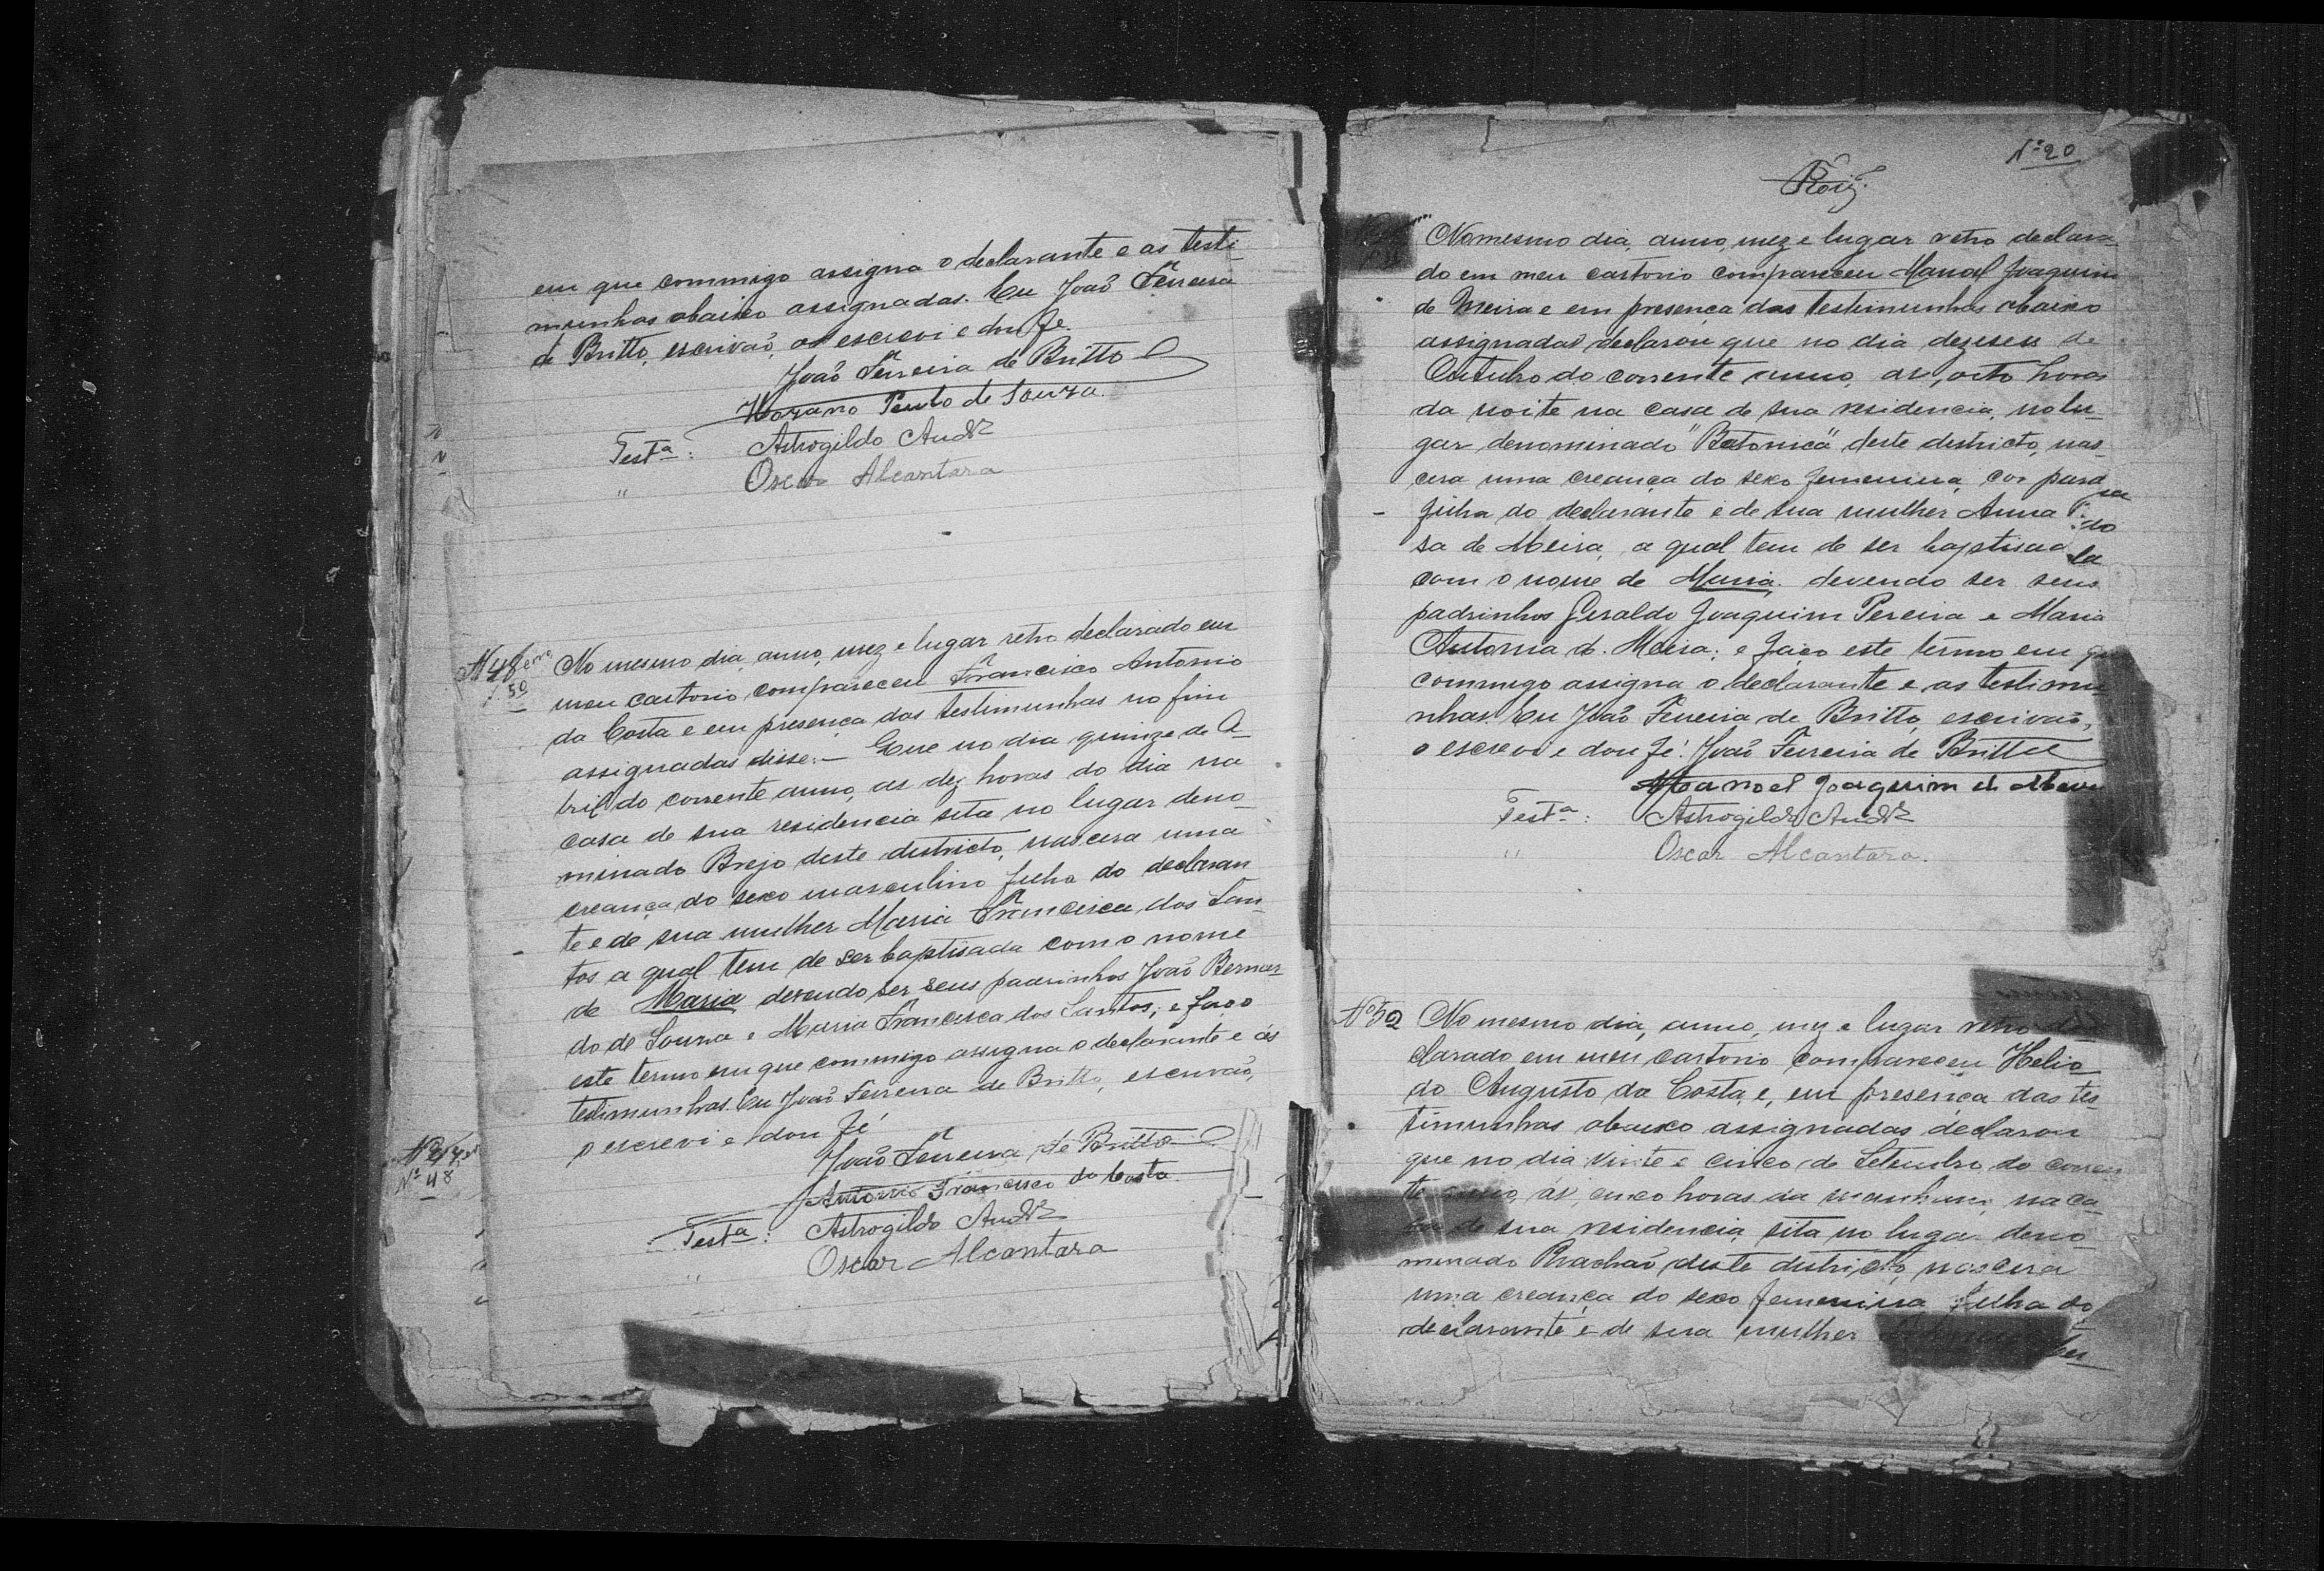 em que commigo assigna o declarante e as testi-
munhas abaixo assignadas. Eu João Ferreira
de Britto, escrivão, os escrevi e dou fé.
João Ferreira de Britto
Pinto de Souza.
Testa: Astrogildo Andr
" Oscar Alcantara
Nº 48
50
No mesmo dia, anno, mez e lugar retro declarado em
meu cartorio compareceu Francisco Antonio
da Costa e em presença das testimunhas no fim
assignadas disse: — Que no dia quinze de A-
bril do corrente anno, as dez horas do dia na
casa de sua residencia sita no lugar deno-
minado Brejo deste districto, nascera uma
creança do sexo masculino filha do declaran
te e de sua mulher Maria Francisca dos San-
tos a qual tem de ser baptisada com o nome
de Maria, devendo ser seus padrinhos João Bernar-
do de Souza e Maria Francisca dos Santos; e faço
este termo em que commigo assigna o declarante e as
testimunhas. Eu João Ferreira de Britto, escrivão,
o escrevi e dou fé
Nº 48
João Ferreira de Britto
Antonio Francisco da Costa.
Testa: Astrogildo Andr
" Oscar Alcantara
Nº 20
No mesmo dia, anno, mez e lugar retro declara
do em meu cartorio compareceu Manoel Joaquim
de Meira e em presença das testimunhas abaixo
assignadas declarou que no dia dezeseis de
Outubro do corrente anno, as, oito horas
da noite na casa de sua residencia, no lu-
gar denominado deste destricto, nas-
cera uma creança do sexo femenina, cor parda
filha do declarante e de sua mulher Anna
sa de Meira, a qual tem de ser baptisada
com o nome de Maria, devendo ser seus
padrinhos Geraldo Joaquim Pereira e Maria
Antonia de Meira; e faço este termo em que
commigo assigna o declarante e as testimu
nhas. Eu João Ferreira de Britto, escrivão,
o escrevi e dou fé. João Ferreira de Britto
Manoel Joaquim de
Testa: Astrogildo Andr
" Oscar Alcantara.
Nº 52 No mesmo dia, anno, mez e lugar retro de
clarado em meu cartorio compareceu Helio
do Augusto da Costa, e, em presença das tes-
timunhas abaixo assignadas declarou
que no dia vinte e cinco de Setembro do corren
te anno, ás, cinco horas da manham, na ca-
sa de sua residencia, sita no lugar deno-
minado Riachão deste districto, nascera
uma creança do sexo femenina filha do
declarante e de sua mulher